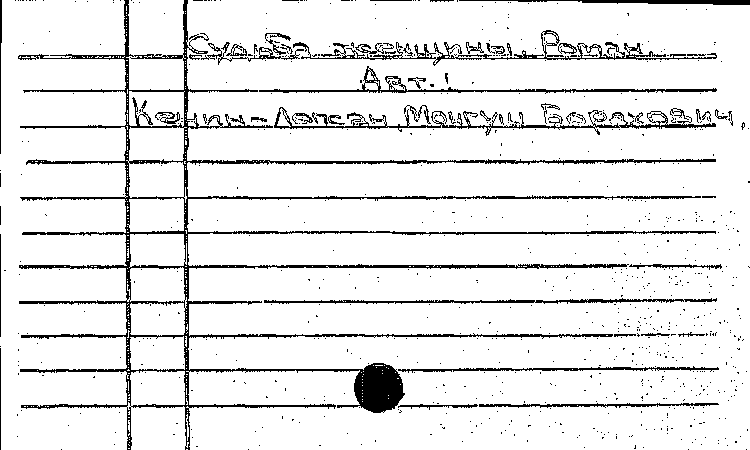 Судьба женщины. Роман.
Авт.:
Кенин-Лопсан, Монгуш Борахович.